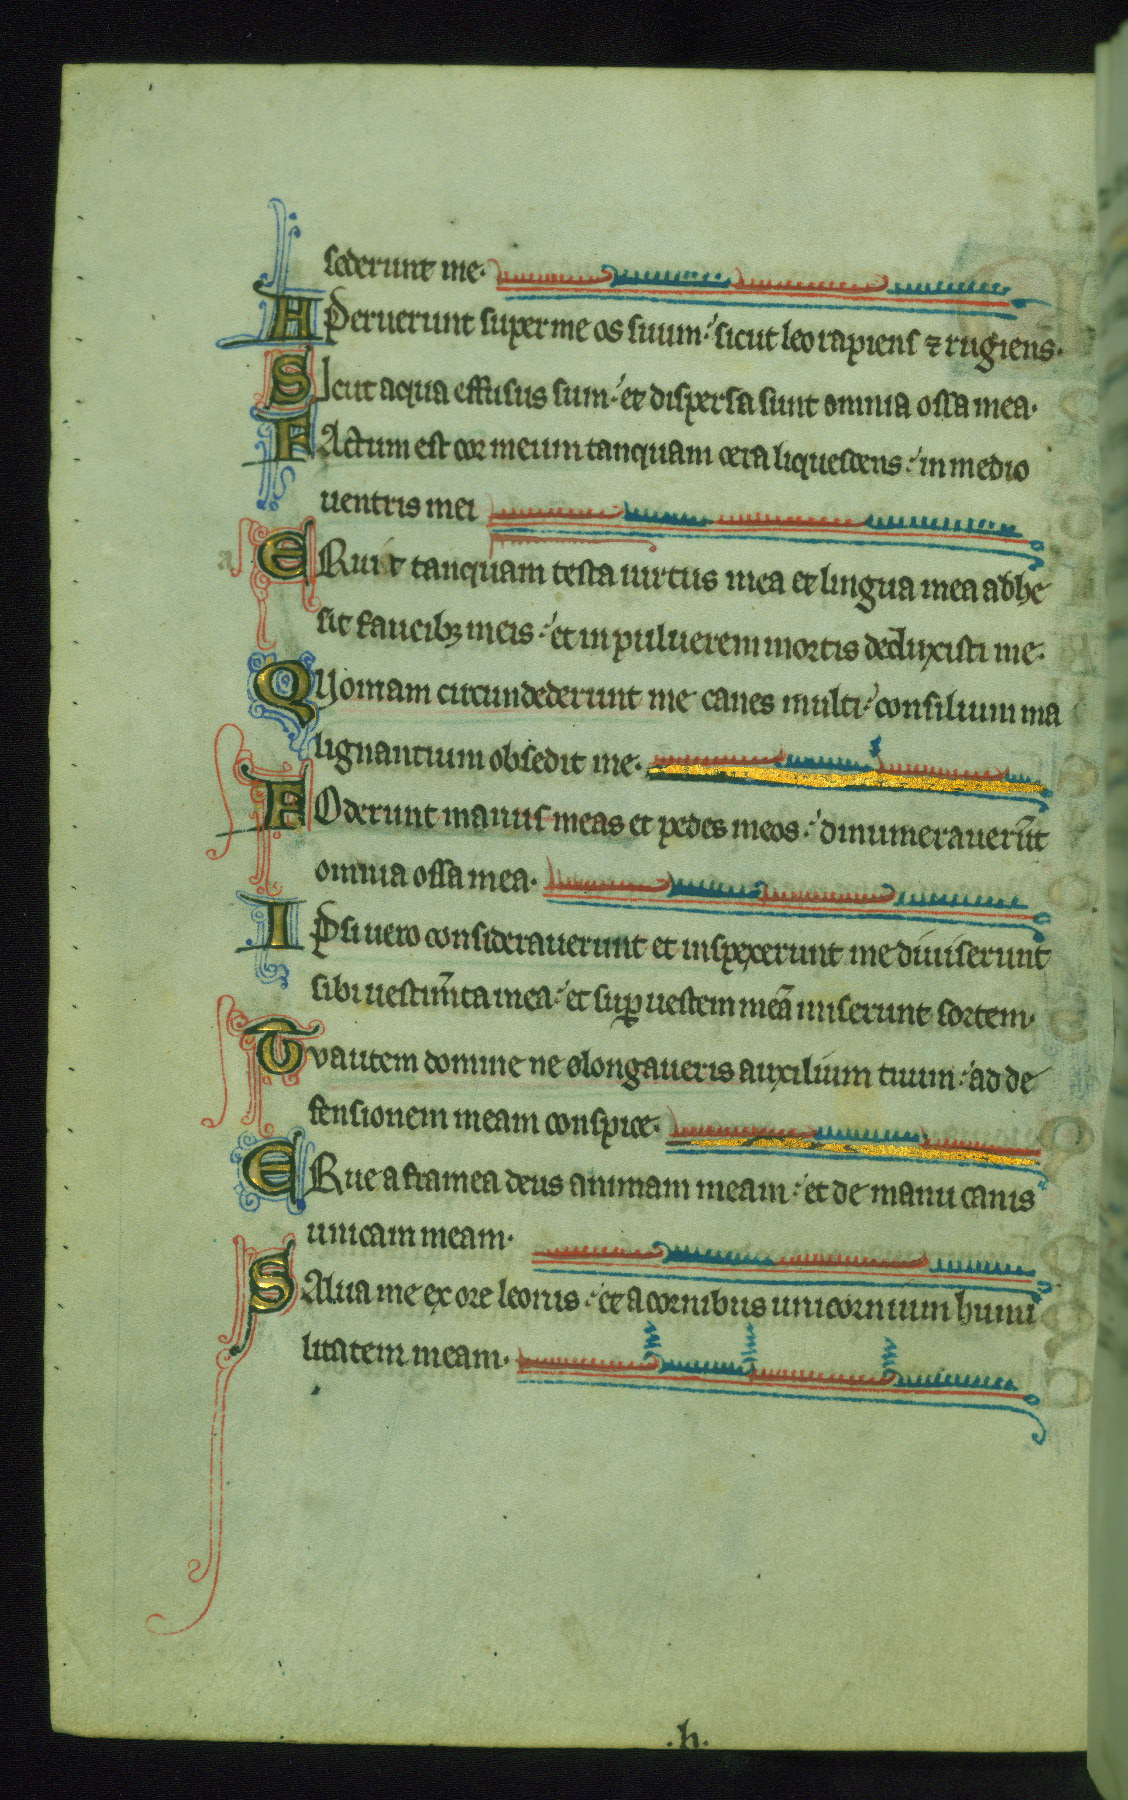 sederunt me.
APeruerunt super me os suum: sicut leo rapiens ⁊ rugiens.
SIcut aqua effusus sum: et dispersa sunt omnia ossa mea.
FActum est cor meum tanquam cera liquescens: in medio
uentris mei
ERuit tanquam testa uirtus mea et lingua mea adhe
sit faucibꝫ meis: et in puluerem mortis deduxisti me.
QUoniam circundederunt me canes multi: consilium ma
lignantium obsedit me.
FOderunt manus meas et pedes meos: dinumerauerūt
omnia ossa mea.
IPsi uero considerauerunt et inspexerunt me diuiserunt
sibi uestim̄ta mea: et suꝑ uestem meā miserunt sortem.
Tu autem domine ne elongaueris auxilium tuum: ad de
fensionem meam conspice.
ERue a framea deus animam meam: et de manu canis
unicam meam.
SAlua me ex ore leonis: et a cornibus unicornium humi
litatem meam.
.h.